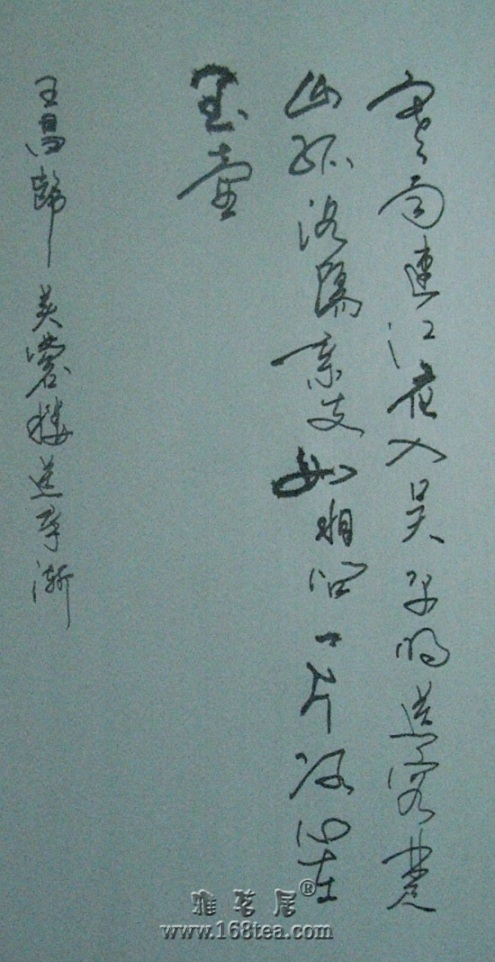 寒雨連江夜入吴平明送客楚
山孤洛陽亲友如相问一片冰心在
玉壶
王昌龄芙蓉楼送辛渐
雅茗居®
www.168tea.com